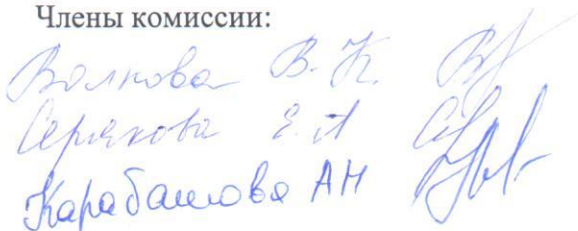 Члены комиссии:
Волкова В. К.
Серякова Е. А
Карабашова АН